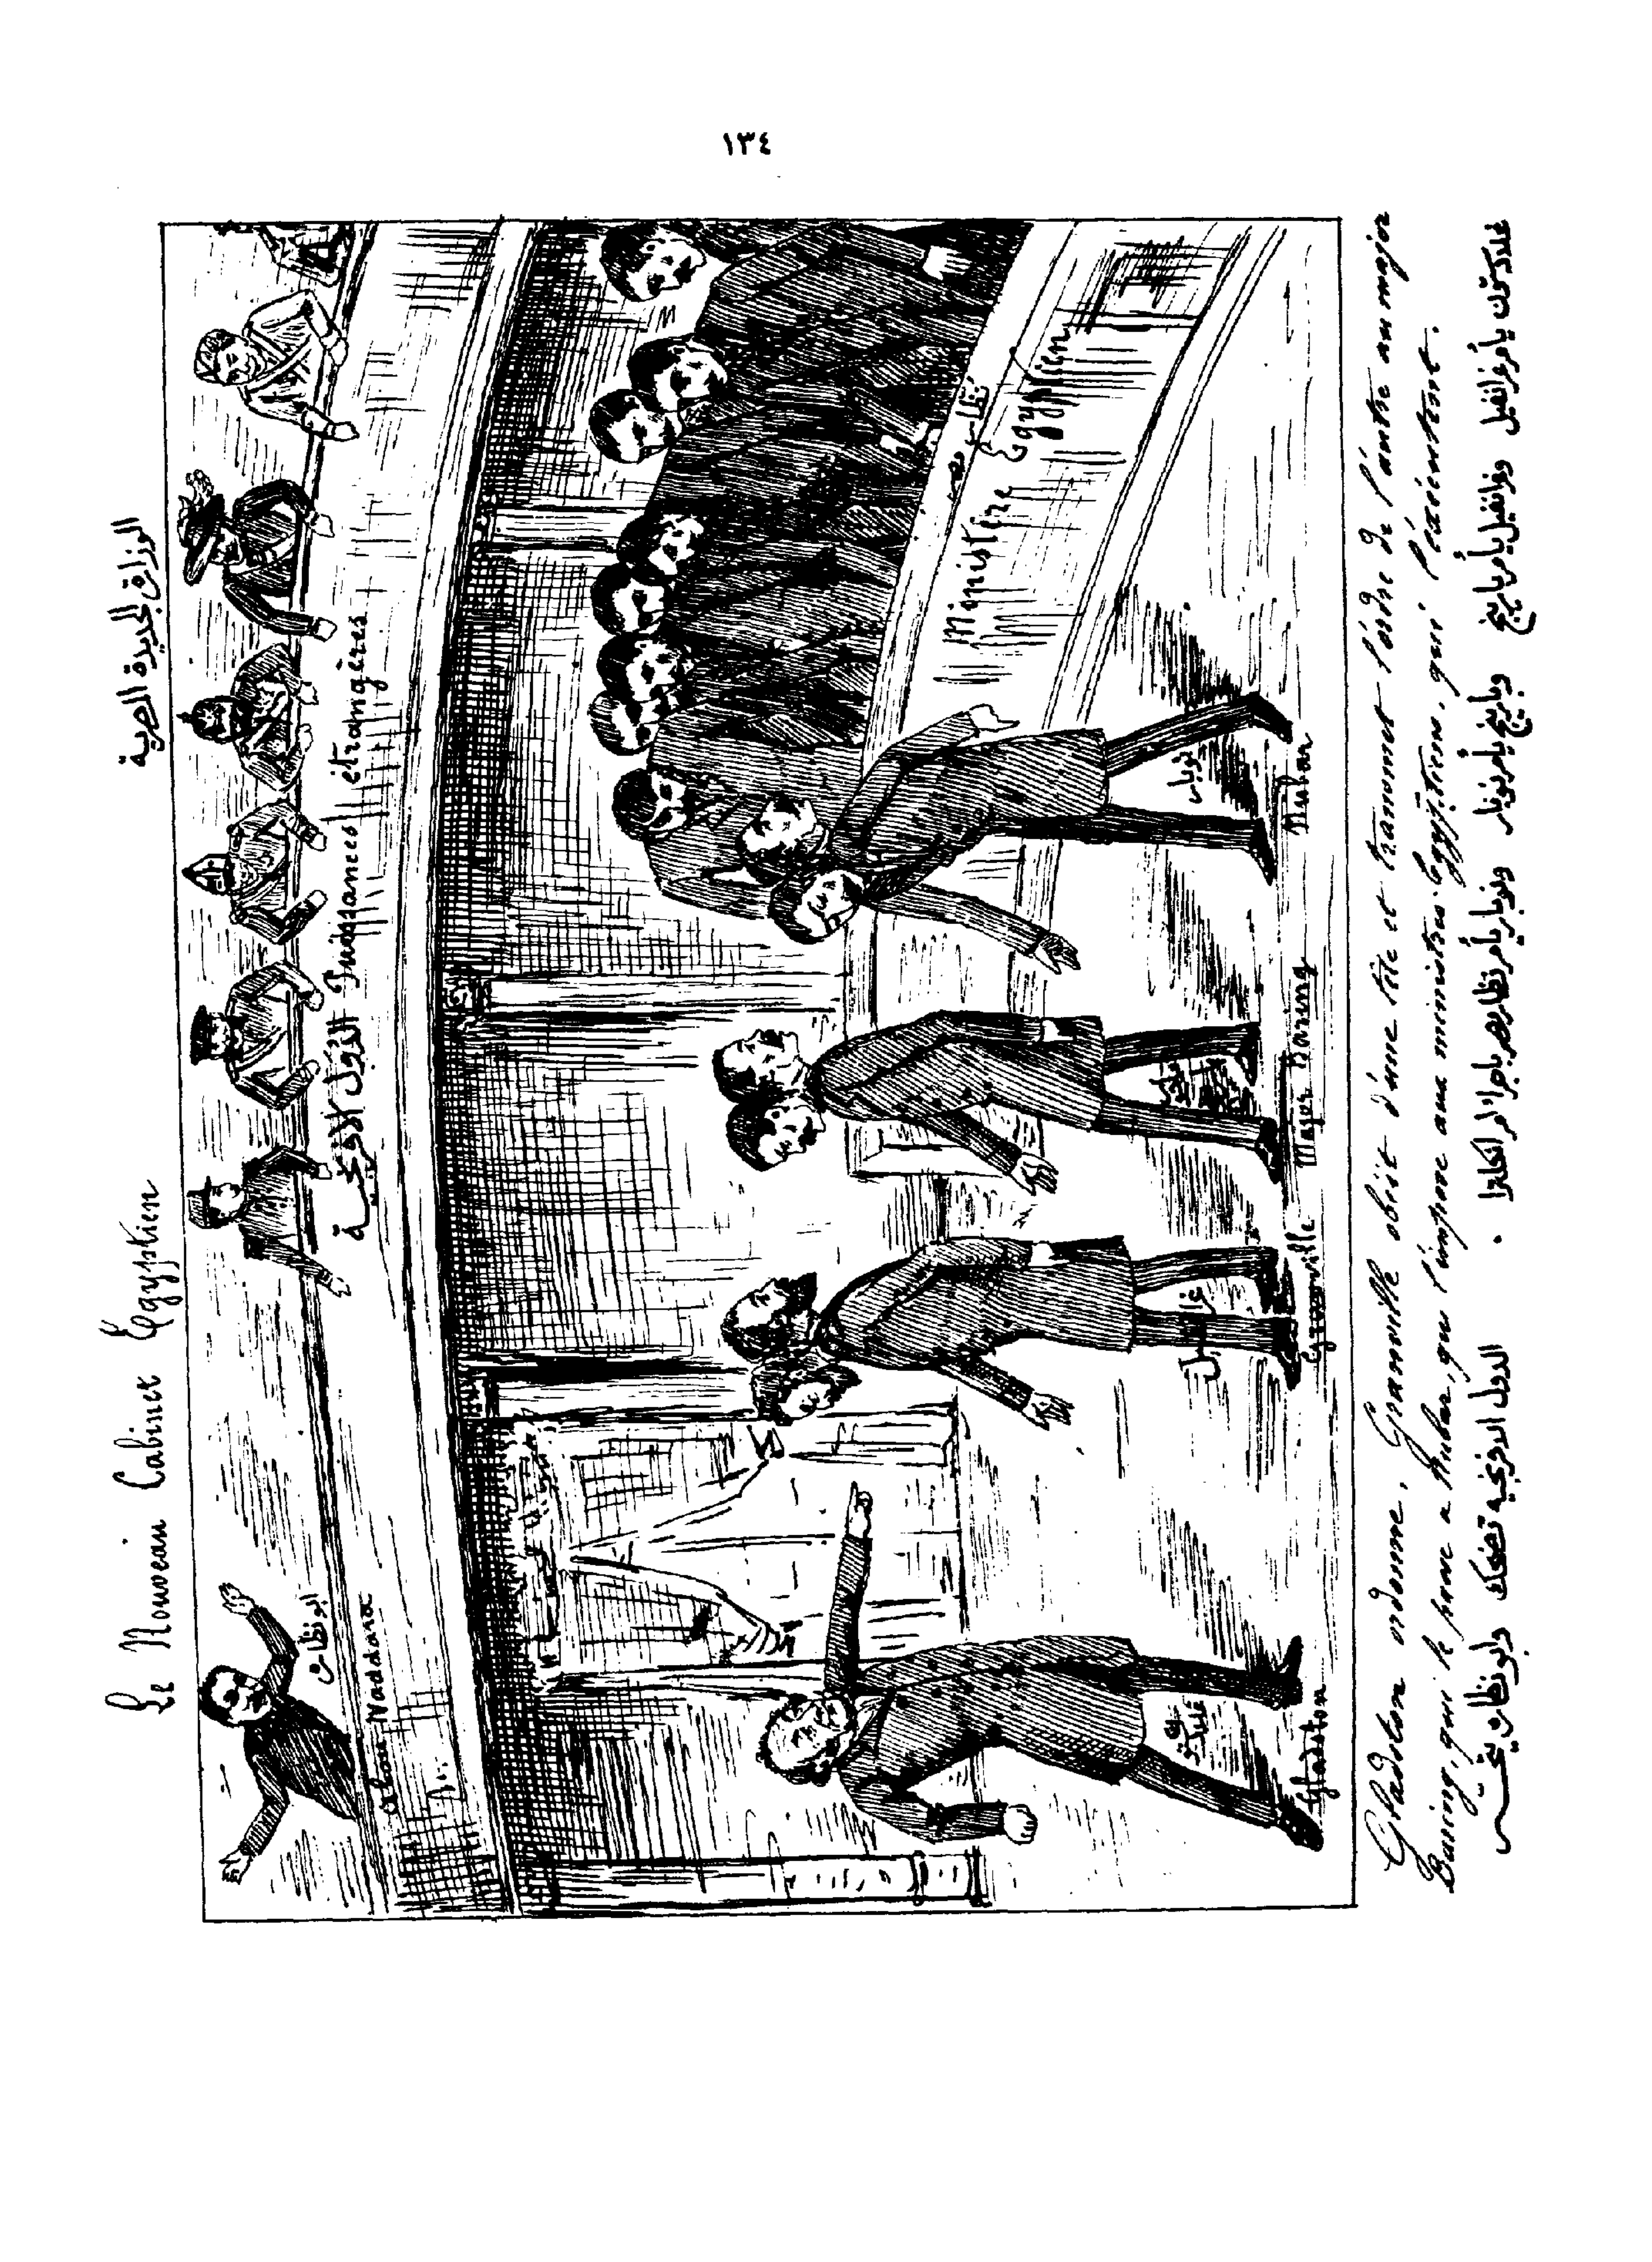 ١٣٤
Le Nouveau Cabinet Egyptien
الوزارة الجديدة المصرية
ابو نظارة
Abou Naddara
الدول الافرنجية
Puissances étrangères
نظارة مصر
Ministère Egyptien
غلادستون
Gladston
غرانفيل
Granville
Major Baring
نوبار
Nubar
Gladston ordonne, Granville obéit d'une tête et transmet l'ordre de l'autre au major
Baring, qui le passe a Nubar, qui l'impose aux ministres Egyptiens, qui l'éxécutent.
غلادستون يأمر غرانفيل وغرانفيل يأمر بارينج وبارينج يأمر نوبار ونوبار يأمر نظار مصر باجراء امر انكلترا
الدول الافرنجيه تضحك وابو نظارة